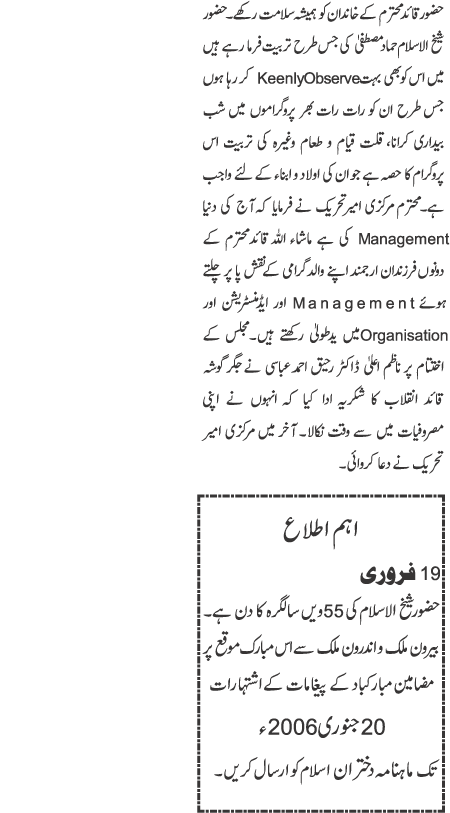 حضور قائد محترم کے خاندان کو ہمیشہ سلامت رکھے۔ حضور
شیخ الاسلام حماد مصطفیٰ کی جس طرح تربیت فرما رہے ہیں
میں اس کو بھی بہت KeenlyObserve کر رہا ہوں
جس طرح ان کو رات رات بھر پروگراموں میں شب
بیداری کرانا، قلت قیام و طعام وغیرہ کی تربیت اس
پروگرام کا حصہ ہے جو ان کی اولاد و ابناء کے لئے واجب
ہے۔ محترم مرکزی امیر تحریک نے فرمایا کہ آج کی دنیا
Management کی ہے ماشاء اللہ قائد محترم کے
دونوں فرزندان ارجمند اپنے والد گرامی کے نقش پا پر چلتے
ہوئے Management اور ایڈمنسٹریشن اور
Organisation میں یدطولیٰ رکھتے ہیں۔ مجلس کے
اختتام پر ناظم اعلیٰ ڈاکٹر رحیق احمد عباسی نے جگر گوشہ
قائد انقلاب کا شکریہ ادا کیا کہ انہوں نے اپنی
مصروفیات میں سے وقت نکالا۔ آخر میں مرکزی امیر
تحریک نے دعا کروائی۔
اہم اطلاع
19 فروری
حضور شیخ الاسلام کی 55ویں سالگرہ کا دن ہے۔
بیرون ملک و اندرون ملک سے اس مبارک موقع پر
مضامین مبارکباد کے پیغامات کے اشتہارات
20 جنوری 2006ء
تک ماہنامہ دختران اسلام کو ارسال کریں۔